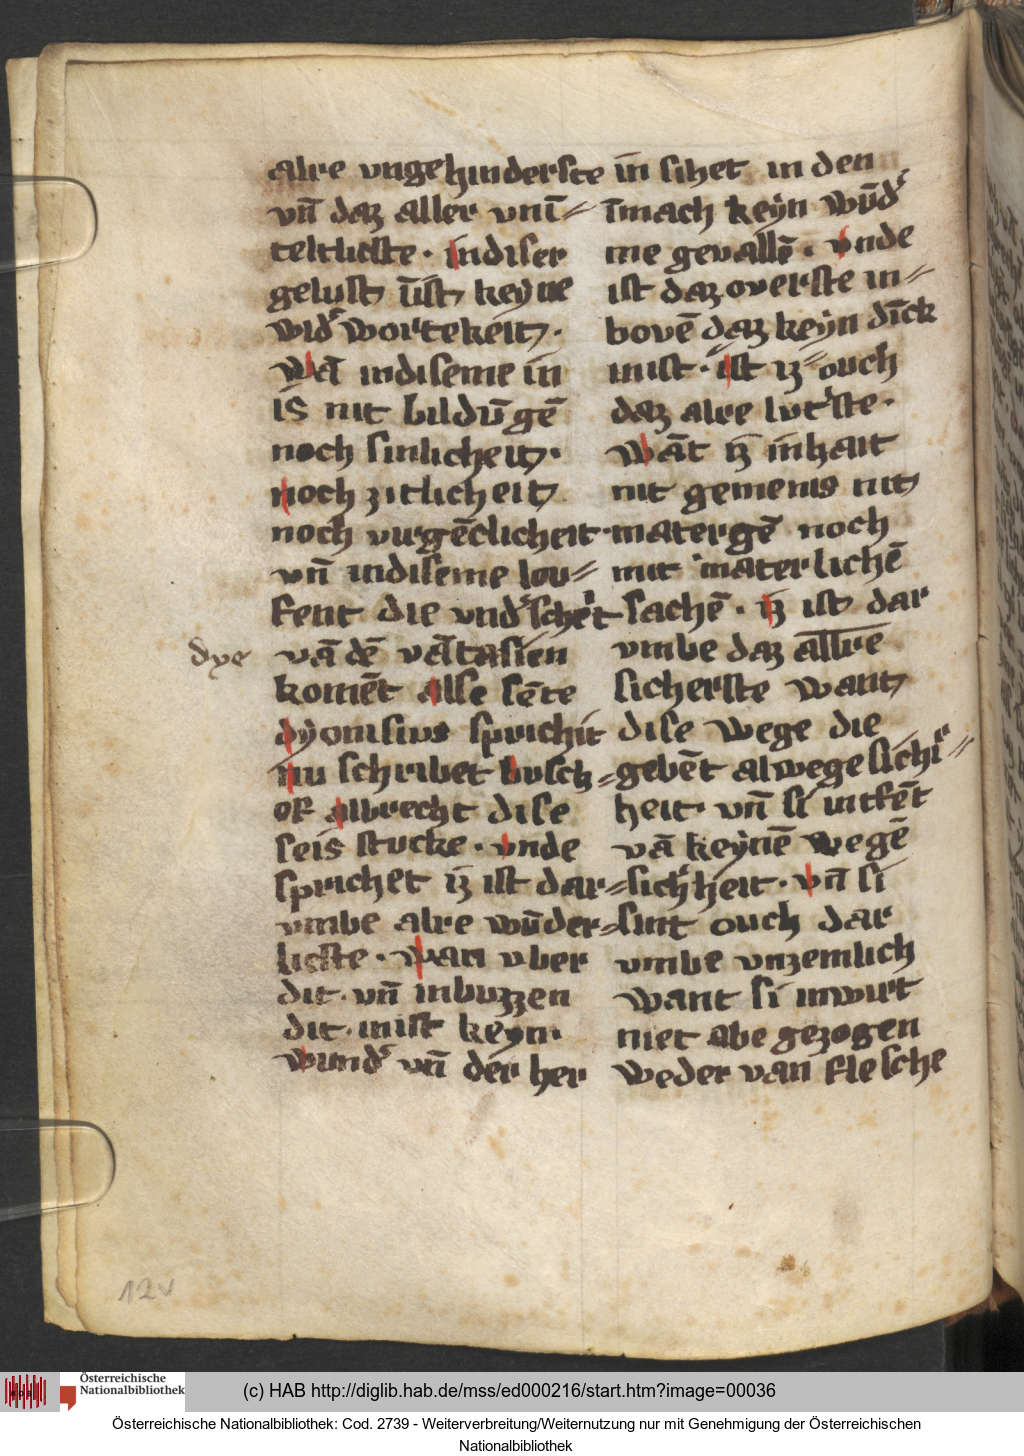 alre vngehinderste
vn̄ daz aller vnī⸗
telticste · indiser
gelust ūist keyne
widʼ wortekeit ·
wā indiseme in
is nit bildūgē
noch sinlicheit ·
noch zitlicheit
noch virgēclicheit ·
vn̄ indiseme lou⸗
fent die vndʼschet
dye
vā dē vātasien
komēt alse sēte
dyonisius sprichit
nu schribet busch⸗
of albrecht dise
seis stucke · vnde
sprichet iz ist dar⸗
vmbe alre wūder⸗
licste · wan vber
dit · vn̄ inbuzzen
dit · inist keyn ·
wundʼ vn̄ der her
in sihet in den
īmach keyn wūdʼ
me gevallē · vnde
ist daz overste in⸗
bovē daz keyn dīck
inist · ist iz ouch
daz alre lvtʼste ·
wāt iz inhait
nit gemenis nit
matergē noch
mit materlichē
sachē · iz ist dar
vmbe daz allre
sicherste want
dise wege die
gebēt alwege sichʼ⸗
heit · vn̄ si intfēt
vā keynē wegē
sichʼheit · vn̄ si
sint ouch dar
vmbe vnzemlich
want si inwirt
niet abe gezogen
weder van flesche
12v
Österreichische
Nationalbibliothek
(c) HAB http://diglib.hab.de/mss/ed000216/start.htm?image=00036
Österreichische Nationalbibliothek: Cod. 2739 - Weiterverbreitung/Weiternutzung nur mit Genehmigung der Österreichischen
Nationalbibliothek